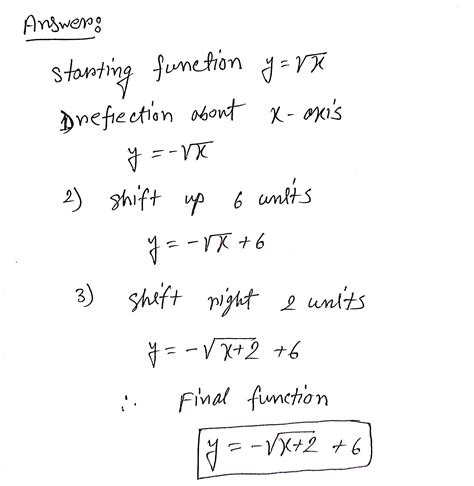 Answer:
starting function y = √x
1) reflection about x-axis
y = -√x
2) shift up 6 units
y = -√x + 6
3) shift right 2 units
y = -√x+2 + 6
∴ Final function
y = -√x+2 + 6